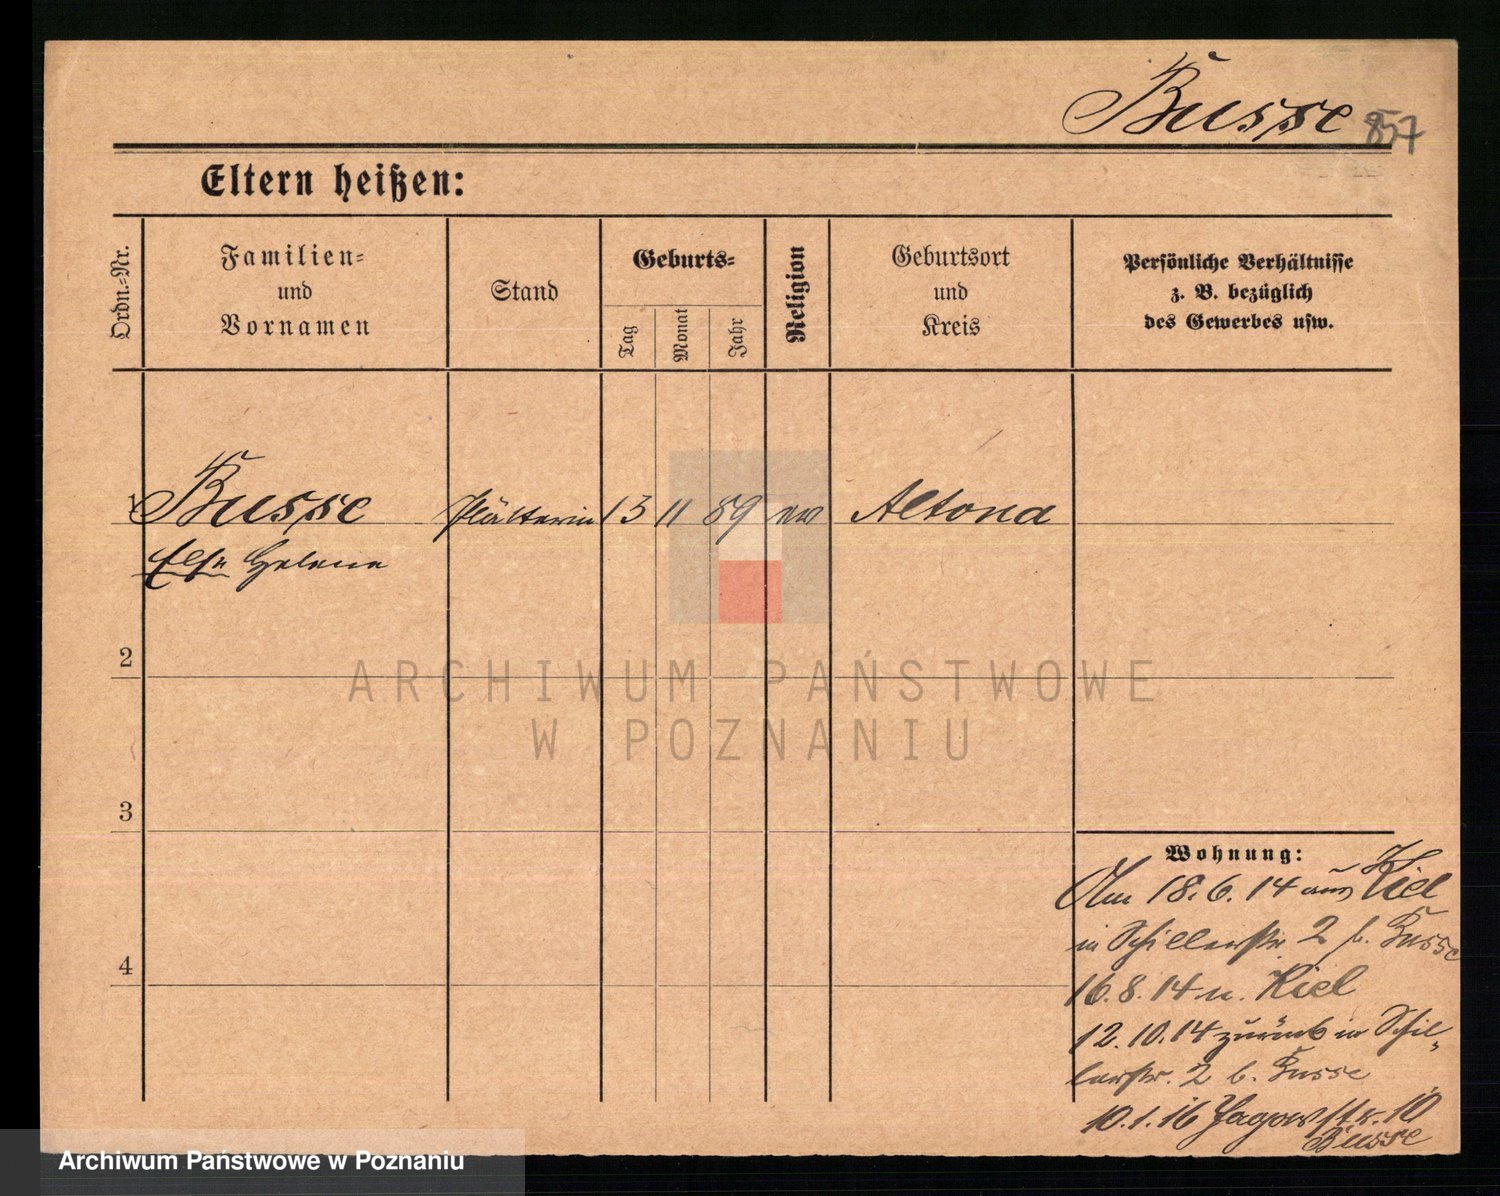 Busse 857
Eltern heißen:
Ordn.-Nr.
Familien-
und
Vornamen
Stand
Geburts-
Tag
Monat
Jahr
Religion
Geburtsort
und
Kreis
Persönliche Verhältnisse
z. B. bezüglich
des Gewerbes usw.
1 Busse Plätterin 13 11 89 ev Altona
Else Helene
2
3
4
ARCHIWUM PAŃSTWOWE
W POZNANIU
Wohnung:
Am 18.6.14 aus Kiel
in Schillerstr 2 b. Busse
16.8.14 n. Kiel
12.10.14 zurück in Schil-
lerstr. 2 b. Busse
10.1.16 Jagowstr. 10
Busse
Archiwum Państwowe w Poznaniu